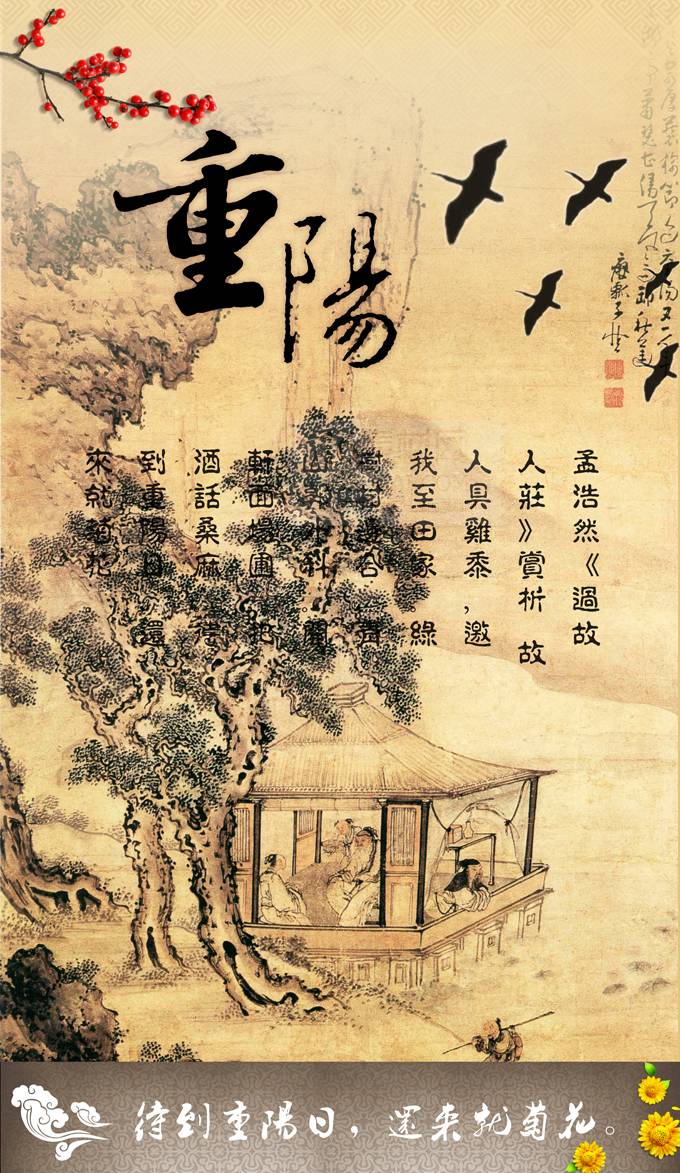 重陽
孟浩然《過故
人莊》賞析 故
人具雞黍,邀
我至田家 綠
樹村邊合 青
山郭外斜。開
軒面場圃 把
酒話桑麻 待
到重陽日,還
來就菊花
待到重陽日，還來就菊花。